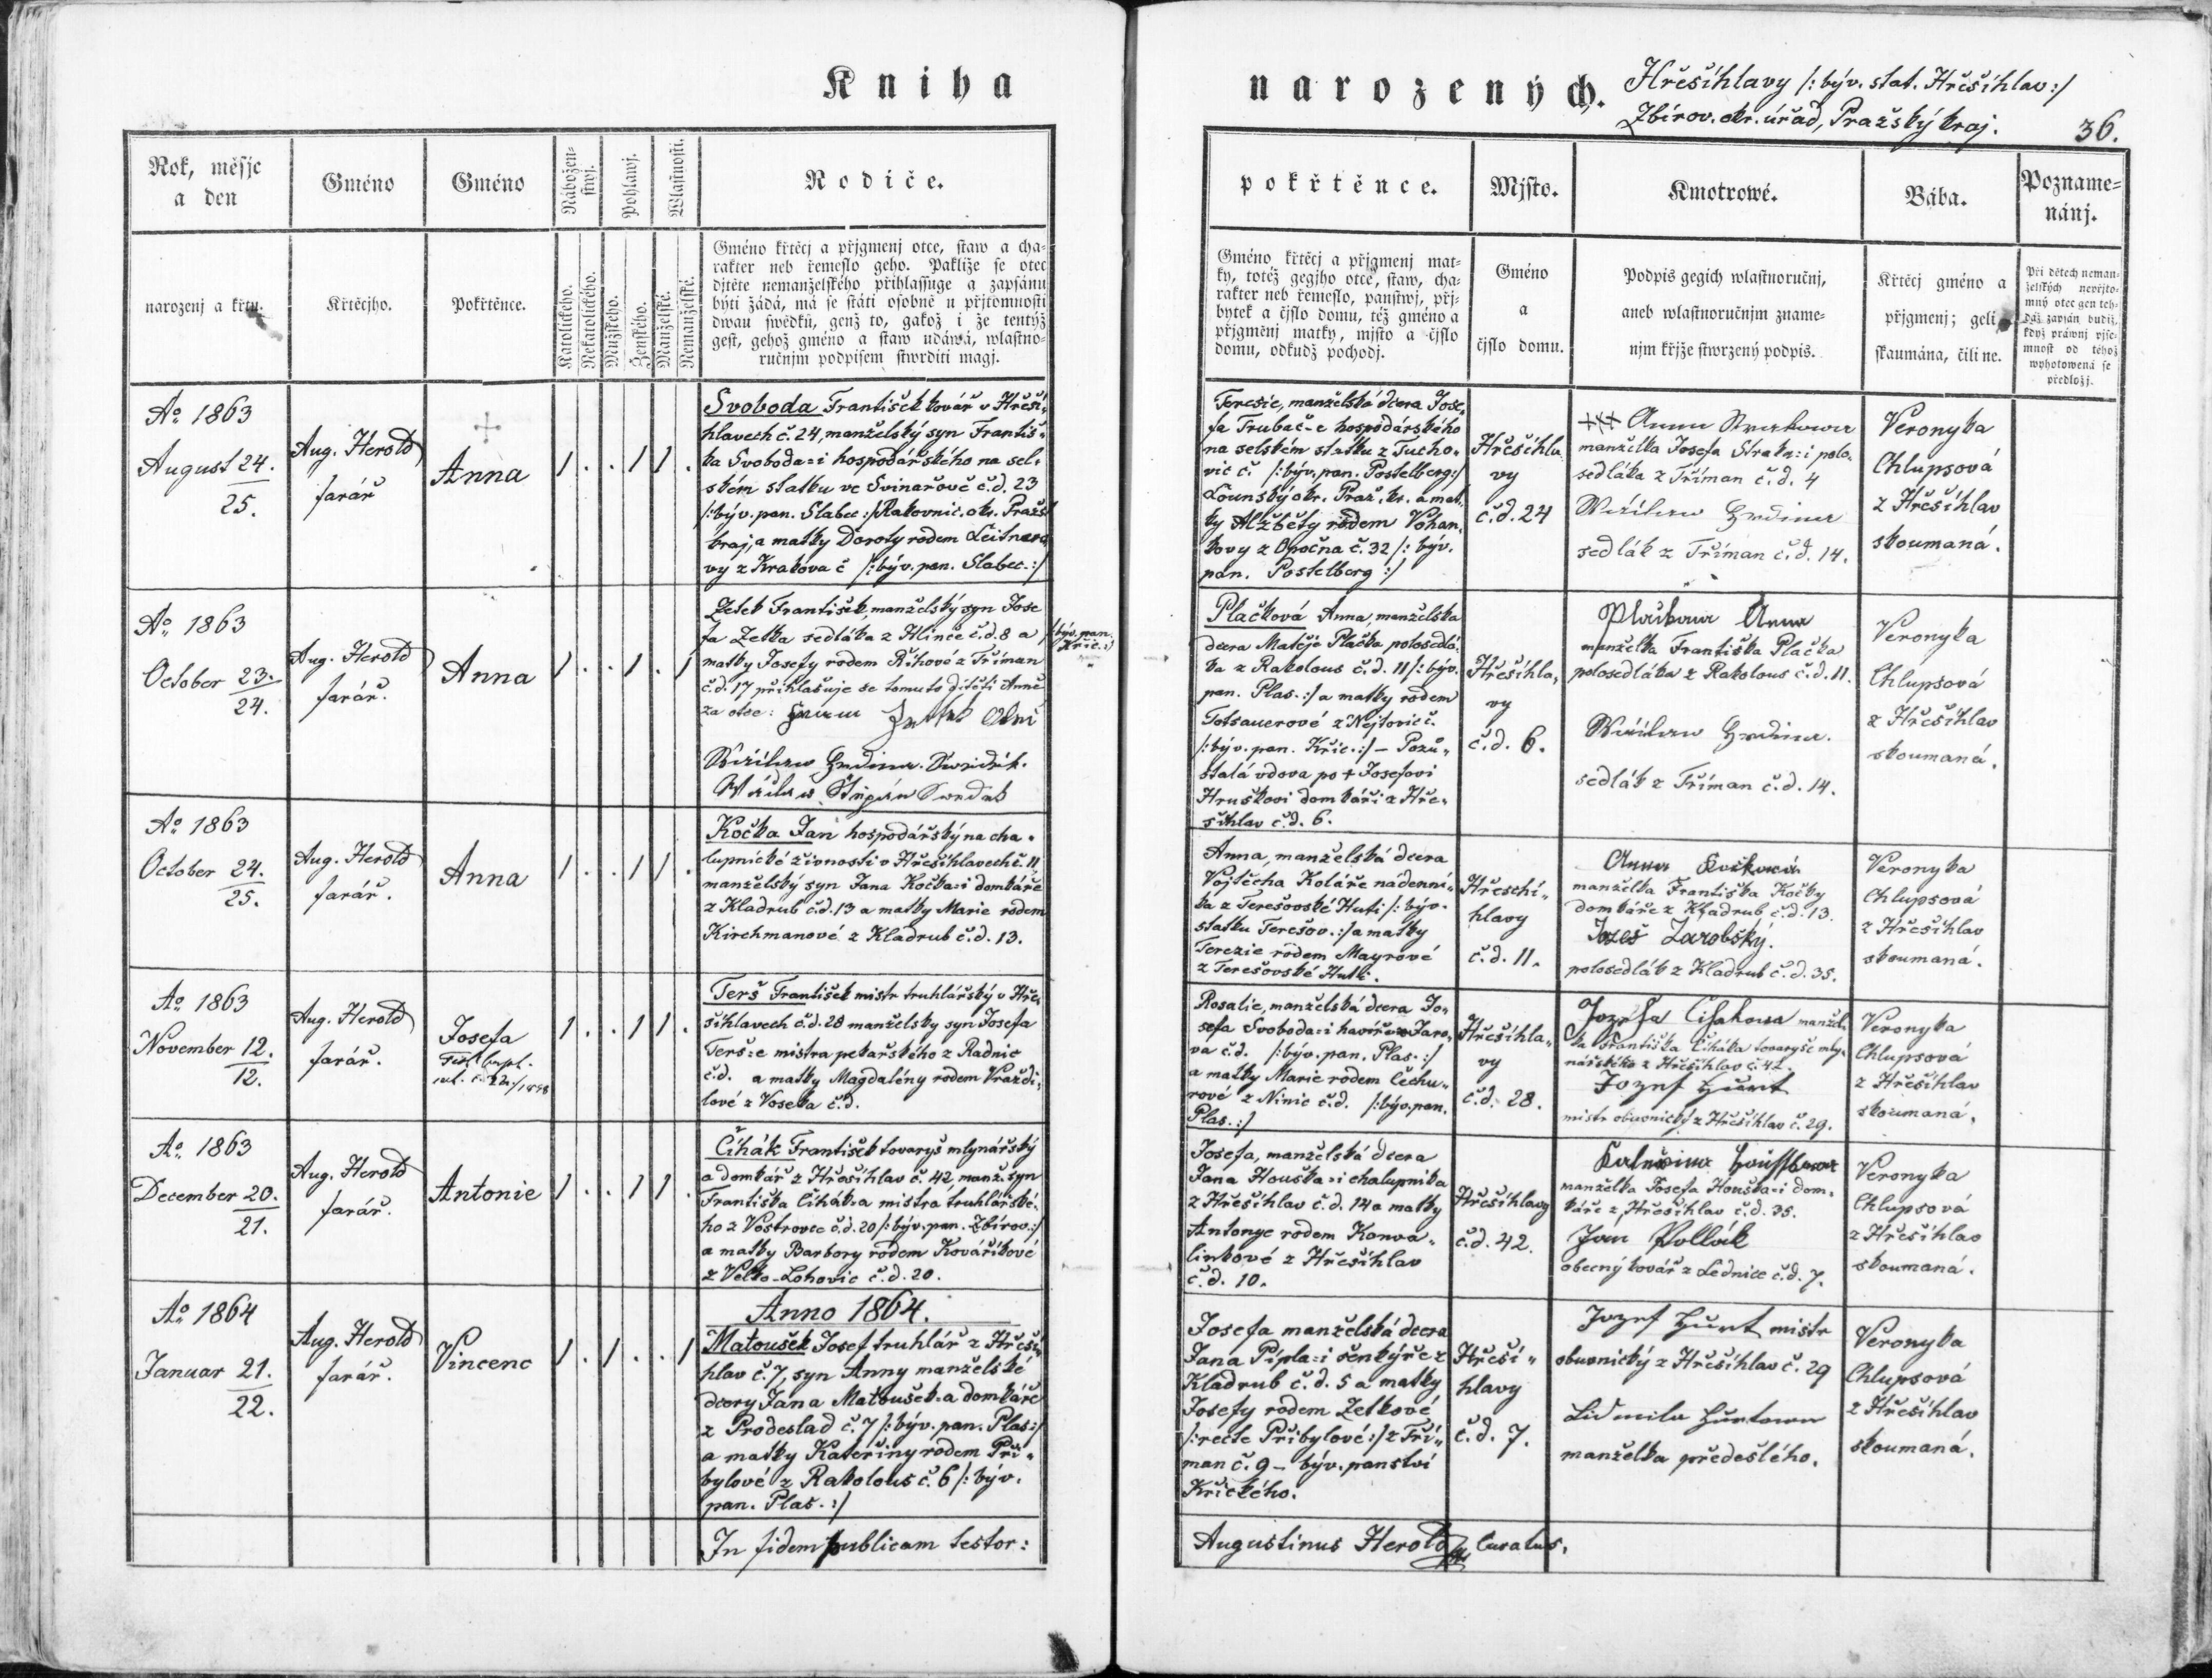 Kniha narozených.
Hřešíhlavy /: býv. stat. Hřešíhlav :/
Zbirov. okr. úřad, Pražský kraj.
36.
Rok, měsjc
a den
narozenj a křtu.
Gméno
Křtěcjho.
Gméno
Pokřtěnce.
Nábožen-
stwj.
Katolického.
Nekatolického.
Pohlawj.
Mužského.
Ženského.
Wlastnosti.
Manželské.
Nemanželské.
Rodiče.
Gméno křtěcj a přjgmenj otce, staw a cha-
rakter neb řemeslo geho. Pakliže se otec
djtěte nemanželského přihlassuge a zapsánu
býti žádá, má se státi osobně u přjtomnosti
dwau swědků, genž to, gakož i že tentýž
gest, gehož gméno a staw udáwá, wlastno-
ručnjm podpisem stwrditi magj.
pokřtěnce.
Gméno křtěcj a přjgmenj mat-
ky, totěž gegjho otce, staw, cha-
rakter neb řemeslo, panstwj, přj-
bytek a čjslo domu, též gméno a
přjgmenj matky, mjsto a čjslo
domu, odkudž pocházj.
Mjsto.
Gméno
a
čjslo domu.
Kmotrowé.
Podpis gegich wlastnoručnj,
aneb wlastnoručnjm zname-
njm křjže stwrzený podpis.
Bába.
Křtěcj gméno a
přjgmenj; geli
skaumána, čili ne.
Pozname-
nánj.
Při dětech neman-
želských nepřjto-
mný otec gen teh-
dáž zapsán budiž,
když práwnj pjse-
mnost od téhož
wyhotowená se
předložj.
Ao 1863
August 24.
25.
Aug. Herold
farář
Anna
1 . . 1 1 .
Svoboda František kovář v Hřeší-
hlavech č. 24, manželský syn Františ-
ka Svoboda=i hospodářského na sel-
ském statku ve Svinařově č.d. 23
/: býv. pan. Slabec :/ Rakovnic. okr. Pražs.
kraj, a matky Doroty rodem Leitnero-
vy z Krakova č /: býv. pan. Slabec. :/
Teresie, manželská dcera Jose-
fa Trubač-e hospodárského
na selském statku z Tucho-
vic č. /: býv. pan. Postelberg :/
Lounský okr. Praž. kr. a mat-
ky Alžběty rodem Vohan-
kovy z Opočna č. 32 /: býv.
pan. Postelberg :/
Hřešíhla-
vy
č.d. 24
+++ Anna Strakowa
manželka Josefa Straka=i polo-
sedláka z Tříman č.d. 4
Wáclaw Hrdina
sedlák z Tříman č.d. 14.
Veronyka
Chlupsová
z Hřešíhlav
skoumaná.
Ao 1863
October 23.
24.
Aug. Herold
farář.
Anna
1 . . 1 . 1
Zelek František, manželský syn Jose
fa Zelka sedláka z Hlince č.d. 8 a /: býv. pan. Křic. :/
matky Josefy rodem Říhové z Tříman
č.d. 17 přihlašuje se tomuto dítěti Anně
za otce:
Wáclaw Hrdina. Swědek.
Wáclaw Štěpán Swědek
Plačková Anna, manželska
dcera Matěje Plačka polosedlá-
ka z Rakolous č.d. 11 /: býv.
pan. Plas. :/ a matky rodem
Totsauerové z Nejtovic č.
/: býv. pan. Křic. :/ – Pozů-
stalá vdova po + Josefovi
Hruškovi domkáři z Hře-
šíhlav č.d. 6.
Hřešíhla-
vy
č.d. 6.
Plačkowa Anna
manželka Františka Plačka
polosedláka z Rakolous č.d. 11.
Wáclaw Hrdina.
sedlák z Tříman č.d. 14.
Veronyka
Chlupsová
z Hřešíhlav
skoumaná.
Ao 1863
October 24.
25.
Aug. Herold
farář.
Anna
1 . . 1 1 .
Kočka Jan hospodářský na cha-
lupnické živnosti v Hřešíhlavech č. 11
manželský syn Jana Kočka=i domkáře
z Kladrub č.d. 13 a matky Marie rodem
Kirchmanové z Kladrub č.d. 13.
Anna, manželská dcera
Vojtěcha Koláře nádenní-
ka z Terešovské Huti /: býv.
statku Terešov. :/ a matky
Terezie rodem Mayrové
z Terešovské Hutě.
Hřeschí-
hlavy
č.d. 11.
Anna Kočková
manželka Františka Kočky
domkáře z Kladrub č.d. 13.
Zarobský.
polosedlák z Kladrub č.d. 35.
Veronyka
Chlupsová
z Hřešíhlav
skoumaná.
Ao 1863
November 12.
12.
Aug. Herold
farář.
Josefa
1 . . 1 1 .
Terš František mistr truhlářský v Hře-
šíhlavech č.d. 28 manželsky syn Josefa
Terš=e mistra pekařského z Radnic
č.d. a matky Magdalény rodem Vraždi-
lové z Voseka č.d.
Rosalie, manželská dcera Jo-
sefa Svoboda=i havíře z Jaro-
va č.d. /: býv. pan. Plas. :/
a matky Marie rodem Čechu-
rové z Ninic č.d. /: býv. pan.
Plas. :/
Hřešíhla-
vy
č.d. 28.
Jozefa Cihakowa manžel-
ka Františka Čiháka tovaryše mly-
nářského z Hřešíhlav č. 42.
Jozef Hurt
mistr obuvnický z Hřešíhlav č. 29.
Veronyka
Chlupsová
z Hřešíhlav
skoumaná.
Ao 1863
December 20.
21.
Aug. Herold
farář.
Antonie
1 . . 1 1 .
Číhák František tovaryš mlynářský
a domkář z Hřešíhlav č. 42, manž. syn
Františka Číhák=a mistra truhlářské-
ho z Vostrovec č.d. 20 /: býv. pan. Zbirov. :/
a matky Barbory rodem Kovaříkové
z Velko-Lohovic č.d. 20.
Josefa, manželská dcera
Jana Houška=i chalupníka
z Hřešíhlav č.d. 14 a matky
Antonye rodem Konva-
linkové z Hřešíhlav
č.d. 10.
Hřešíhlavy
č.d. 42.
manželka Josefa Houška=i dom-
káře z Hřešíhlav č.d. 35.
Jan Pollák
obecný kovář z Lednice č.d. 7.
Veronyka
Chlupsová
z Hřešíhlav
skoumaná.
Ao 1864
Januar 21.
22.
Aug. Herold
farář.
Vincenc
1 . 1 . . 1
Anno 1864.
Matoušek Josef truhlář z Hřeší-
hlav č. 7, syn Anny manželské
dcery Jana Matoušek=a domkáře
z Prodeslad č. 7 /: býv. pan. Plas :/
a matky Kateřiny rodem Při-
bylové z Rakolous č. 6 /: býv.
pan. Plas. :/
Josefa manželská dcera
Jana Pípla=i šenkýře z
Kladrub č.d. 5 a matky
Josefy rodem Zelkové
/: recte Přibylové :/ z Tří-
man č. 9 – býv. panství
Křického.
Hřeší-
hlavy
č.d. 7.
Jozef Hurt mistr
obuvnický z Hřešíhlav č. 29
Lidmila Hurtowa
manželka předešlého.
Veronyka
Chlupsová
z Hřešíhlav
skoumaná.
In fidem publicam testor:
Augustinus Herold Curatus.